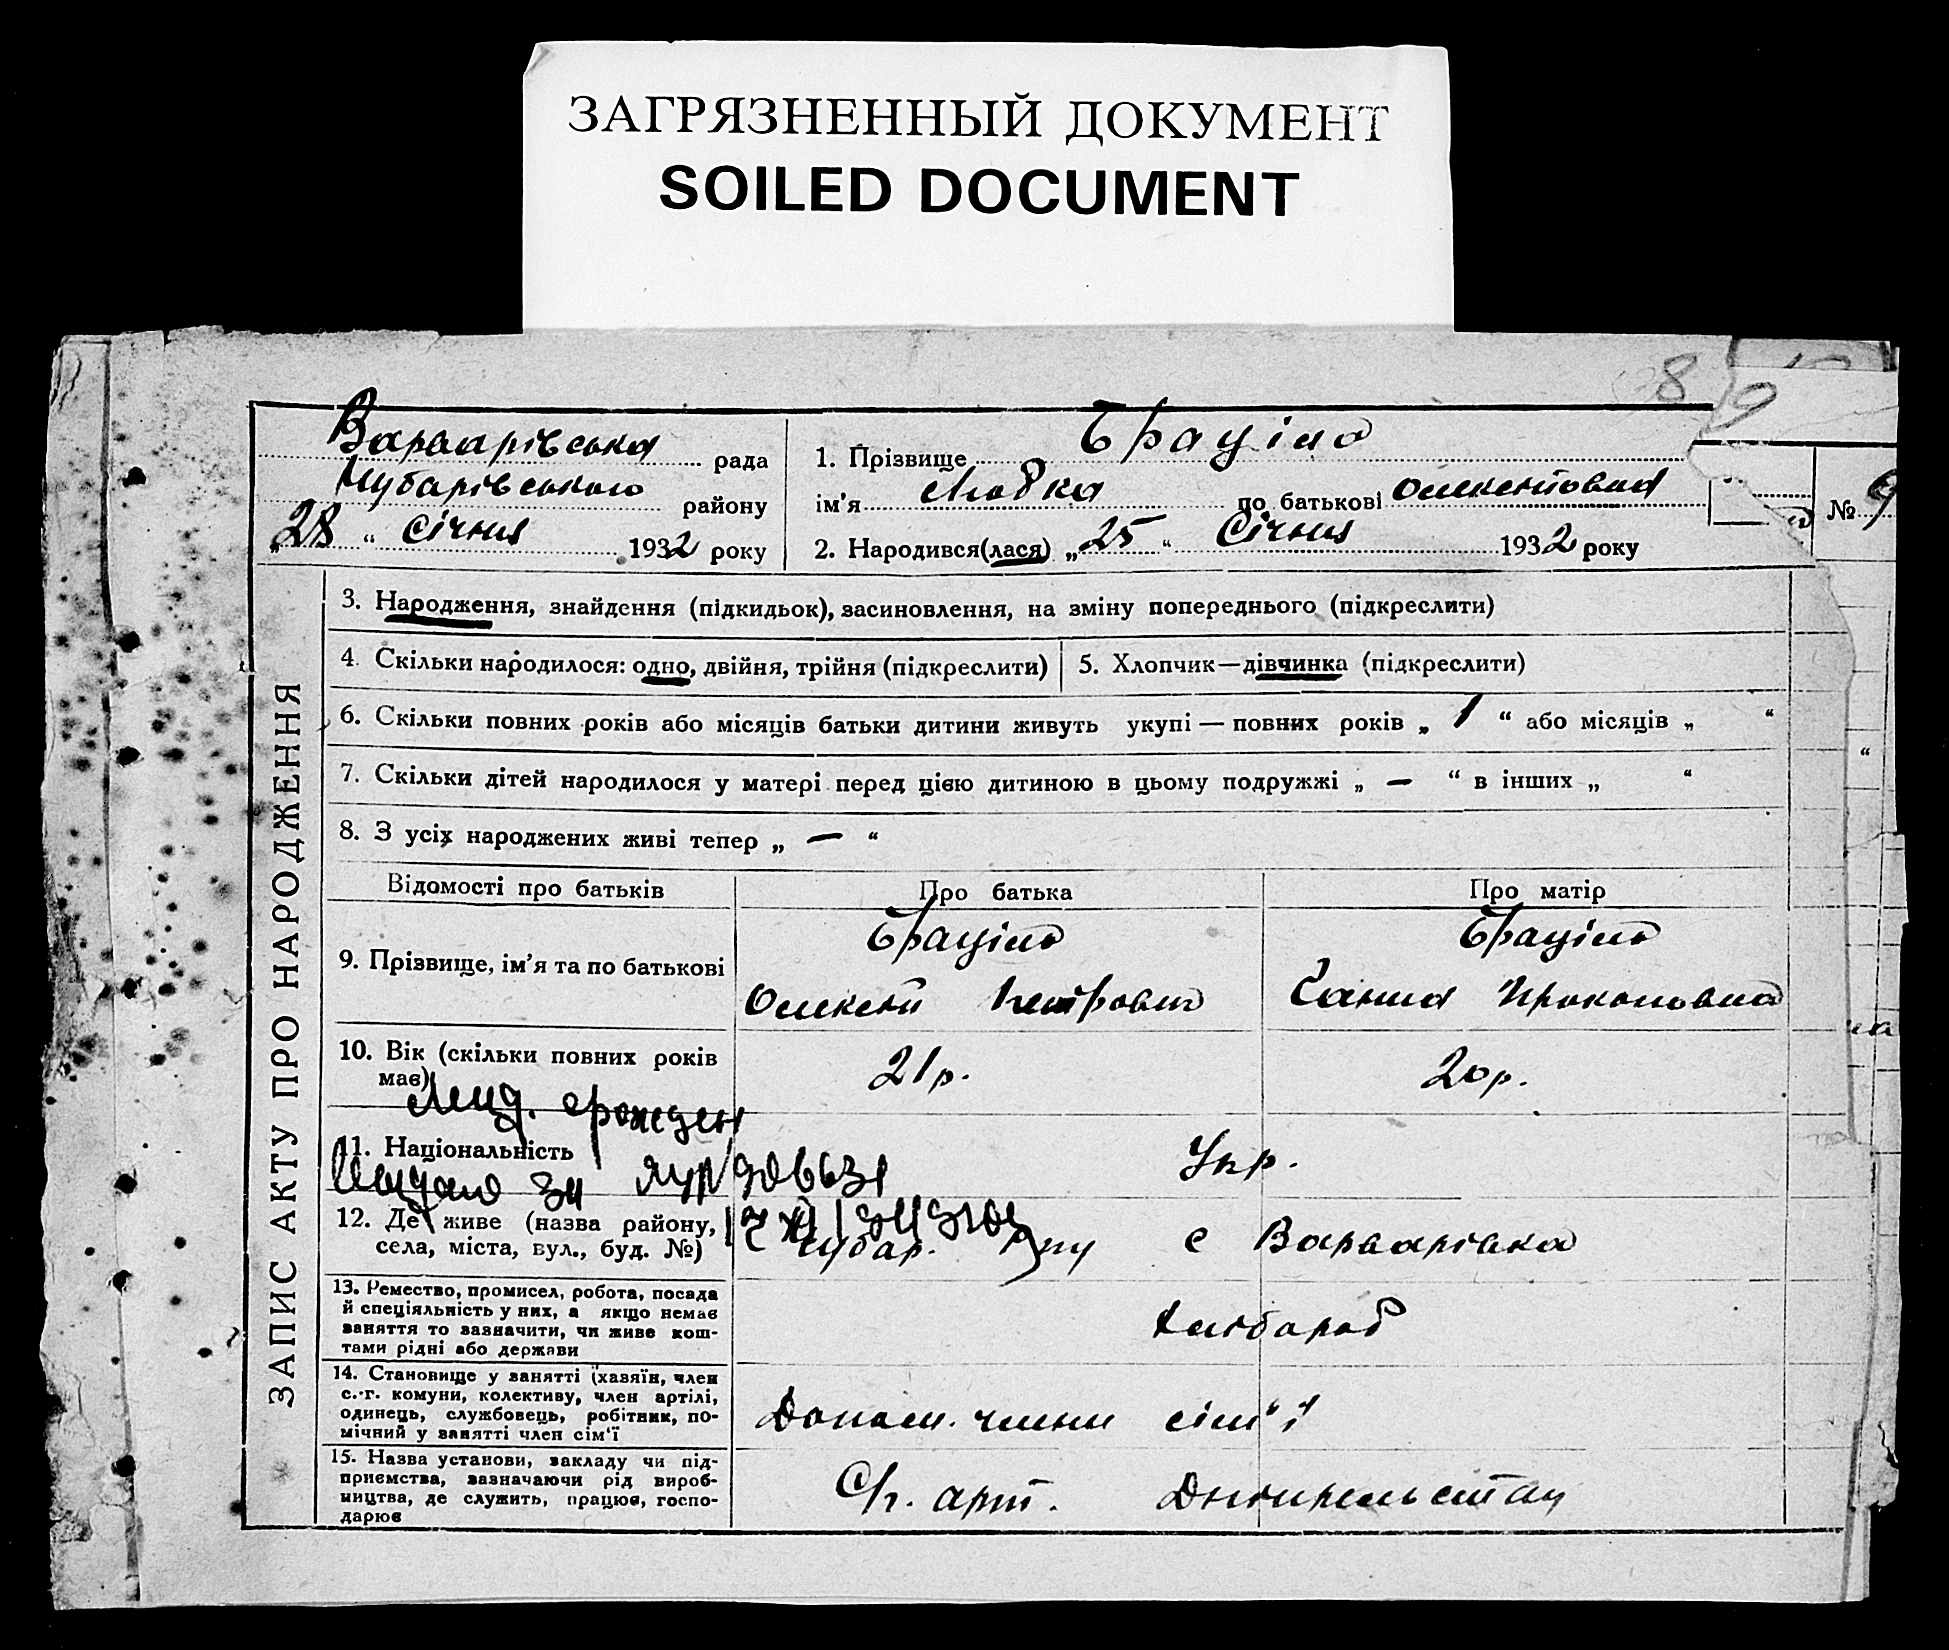 ЗАГРЯЗНЕННЫЙ ДОКУМЕНТ
SOILED DOCUMENT
8
9
Варварівська рада
Чубарівського району
„28“ січня 1932 року
1. Прізвище
ім'я Любка по батькові Олексіївна
2. Народився(лася) „25“ Січня 1932 року
№ 9
ЗАПИС АКТУ ПРО НАРОДЖЕННЯ
3. Народження, знайдення (підкидьок), засиновлення, на зміну попереднього (підкреслити)
4. Скільки народилося: одно, двійня, трійня (підкреслити)
5. Хлопчик—дівчинка (підкреслити)
6. Скільки повних років або місяців батьки дитини живуть укупі — повних років „ 1 “ або місяців „ “
7. Скільки дітей народилося у матері перед цією дитиною в цьому подружжі „ — “ в інших „ “
8. З усіх народжених живі тепер „ — “
Відомості про батьків
Про батька
Про матір
9. Прізвище, ім'я та по батькові
Олексій Петрович
Ганна Прокоповна
10. Вік (скільки повних років
має)
21 р.
20 р.
11. Національність
Укр.
12. Де живе (назва району,
села, міста, вул., буд. №)
Чубар. р-ну с Варварівка
13. Ремество, промисел, робота, посада
й спеціяльність у них, а якщо немає
заняття то зазначити, чи живе кош-
тами рідні або держави
Хлібороб
14. Становище у занятті (хазяїн, член
с.-г. комуни, колективу, член артілі,
одинець, службовець, робітник, по-
мічний у занятті член сім'ї
Допом. члени сім'ї
15. Назва установи, закладу чи під-
приємства, зазначаючи рід вироб-
ництва, де служить, працює, госпо-
дарює
С/г. арт. Дніпрельстан